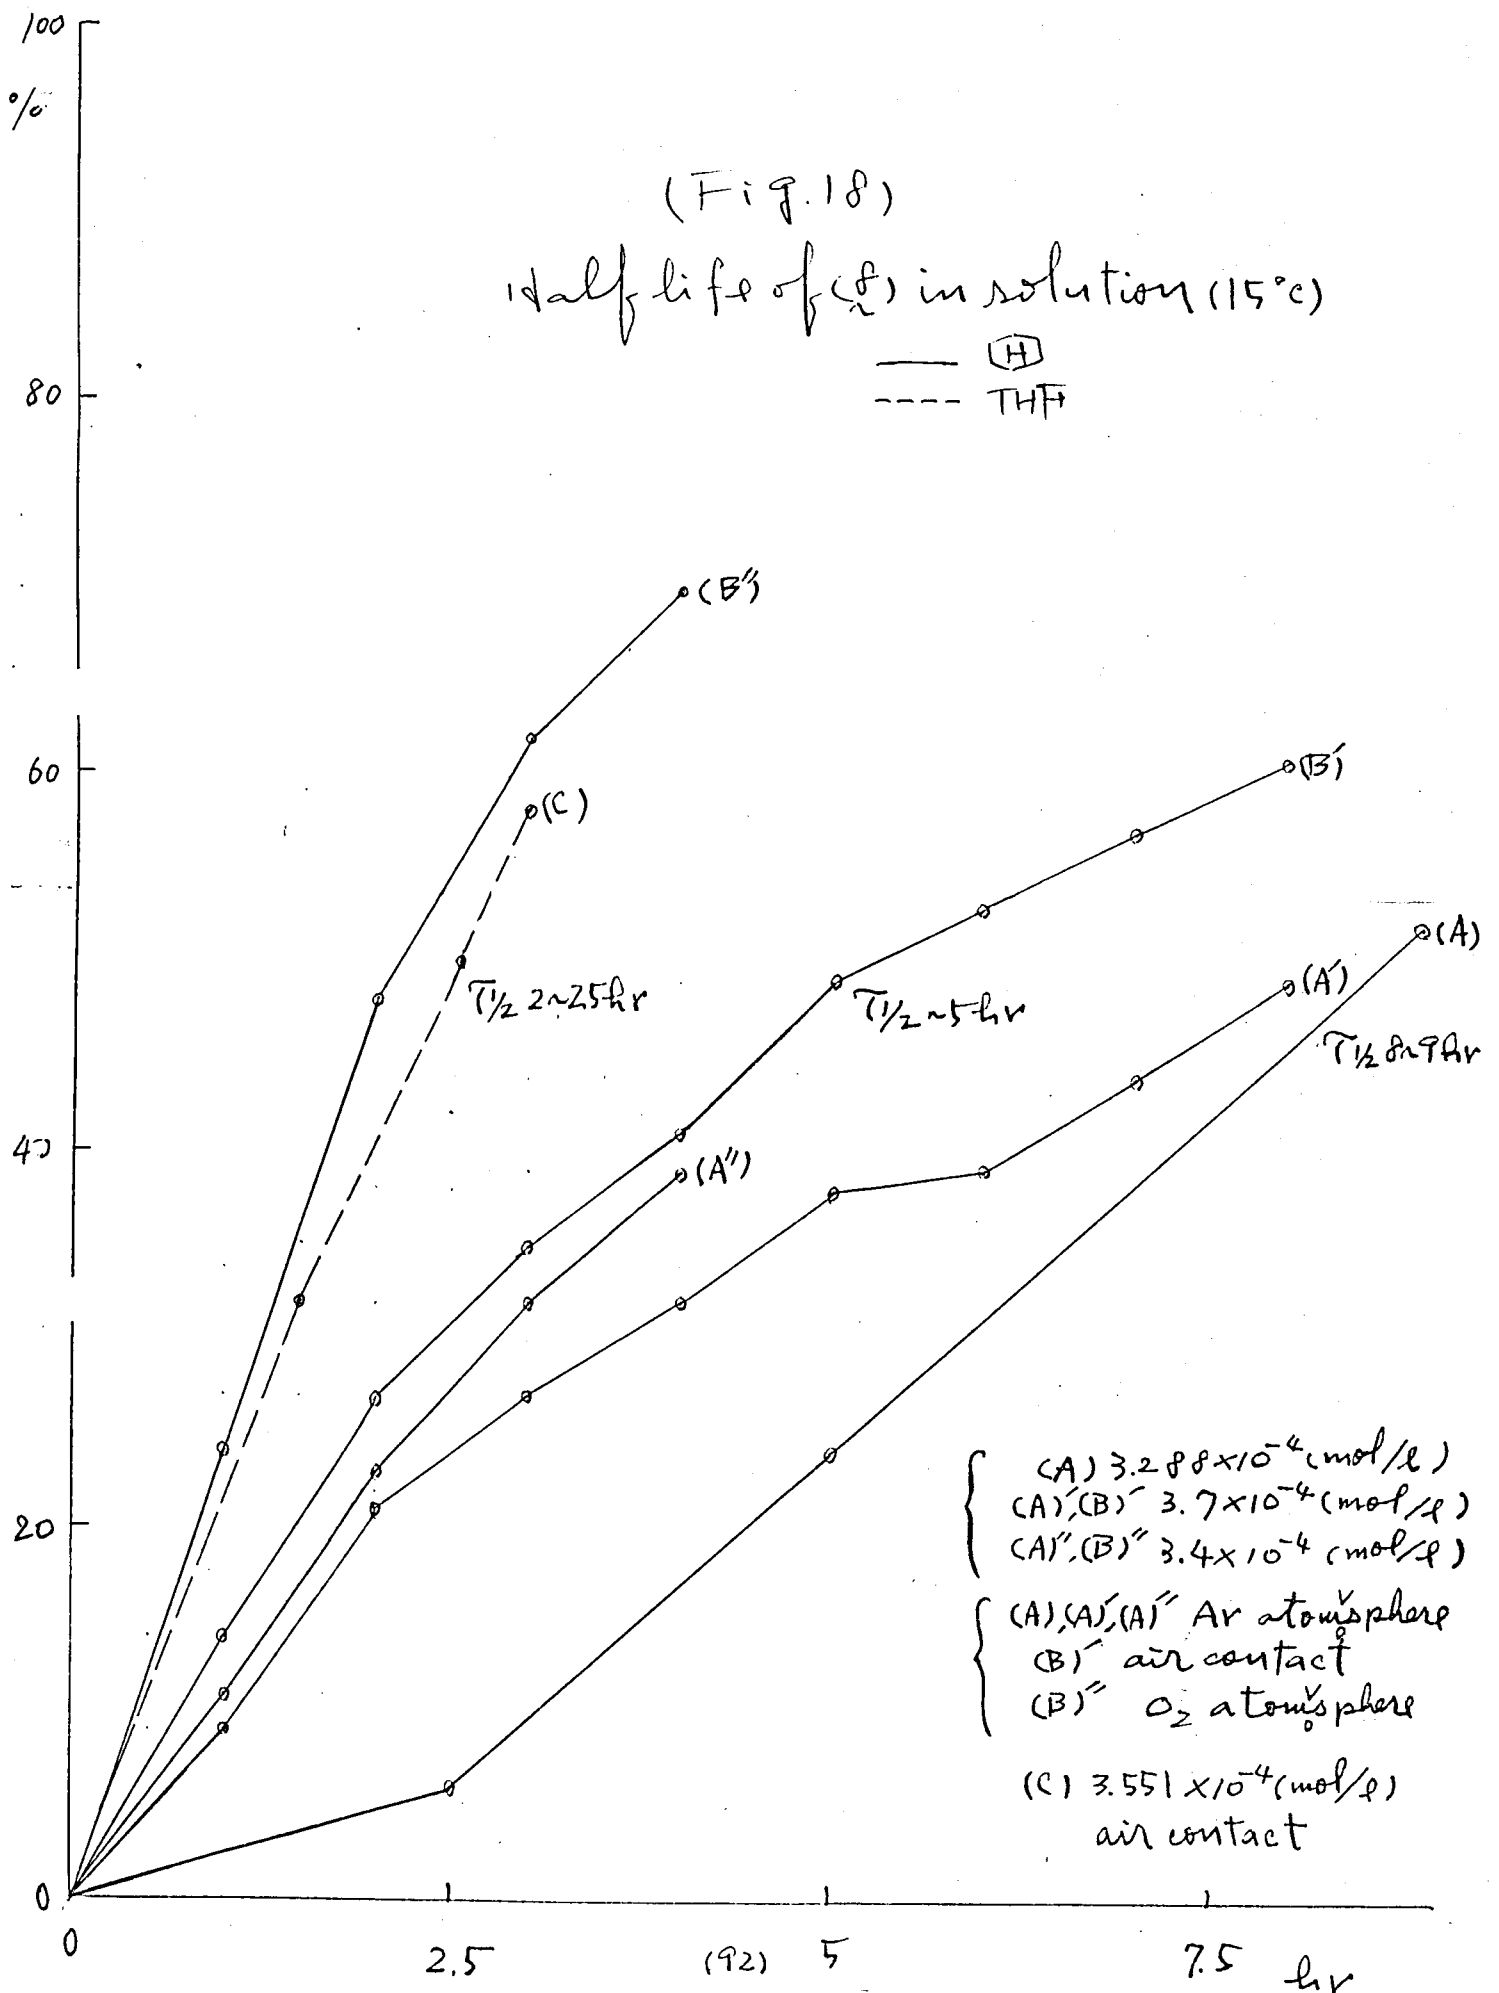 100
%
(Fig.18)
Half life of (8) in solution (15°C)
—— H
---- THF
80
(B″)
60
(B′)
(C)
(A)
T1/2 2~2.5hr
T1/2 ~5hr
(A′)
T1/2 8~9hr
40
(A″)
(A) 3.288×10⁻⁴ (mol/l)
(A)′,(B)′ 3.7×10⁻⁴ (mol/l)
20
(A)″,(B)″ 3.4×10⁻⁴ (mol/l)
(A),(A)′,(A)″ Ar atomisphere
(B)′ air contact
(B)″ O₂ atomisphere
(C) 3.551×10⁻⁴ (mol/l)
air contact
0
0
2.5
(92)
5
7.5
hr